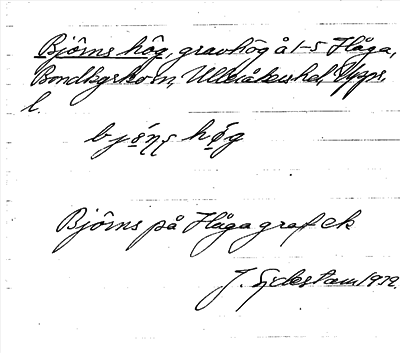 Björns hög, gravhög å 1-5 Håga,
Bondkyrko sn, Ulleråkers hd, Upps.
l.
bjö́ṇṣ hö̀g
Björns på Håga graf ek
J. 1932.